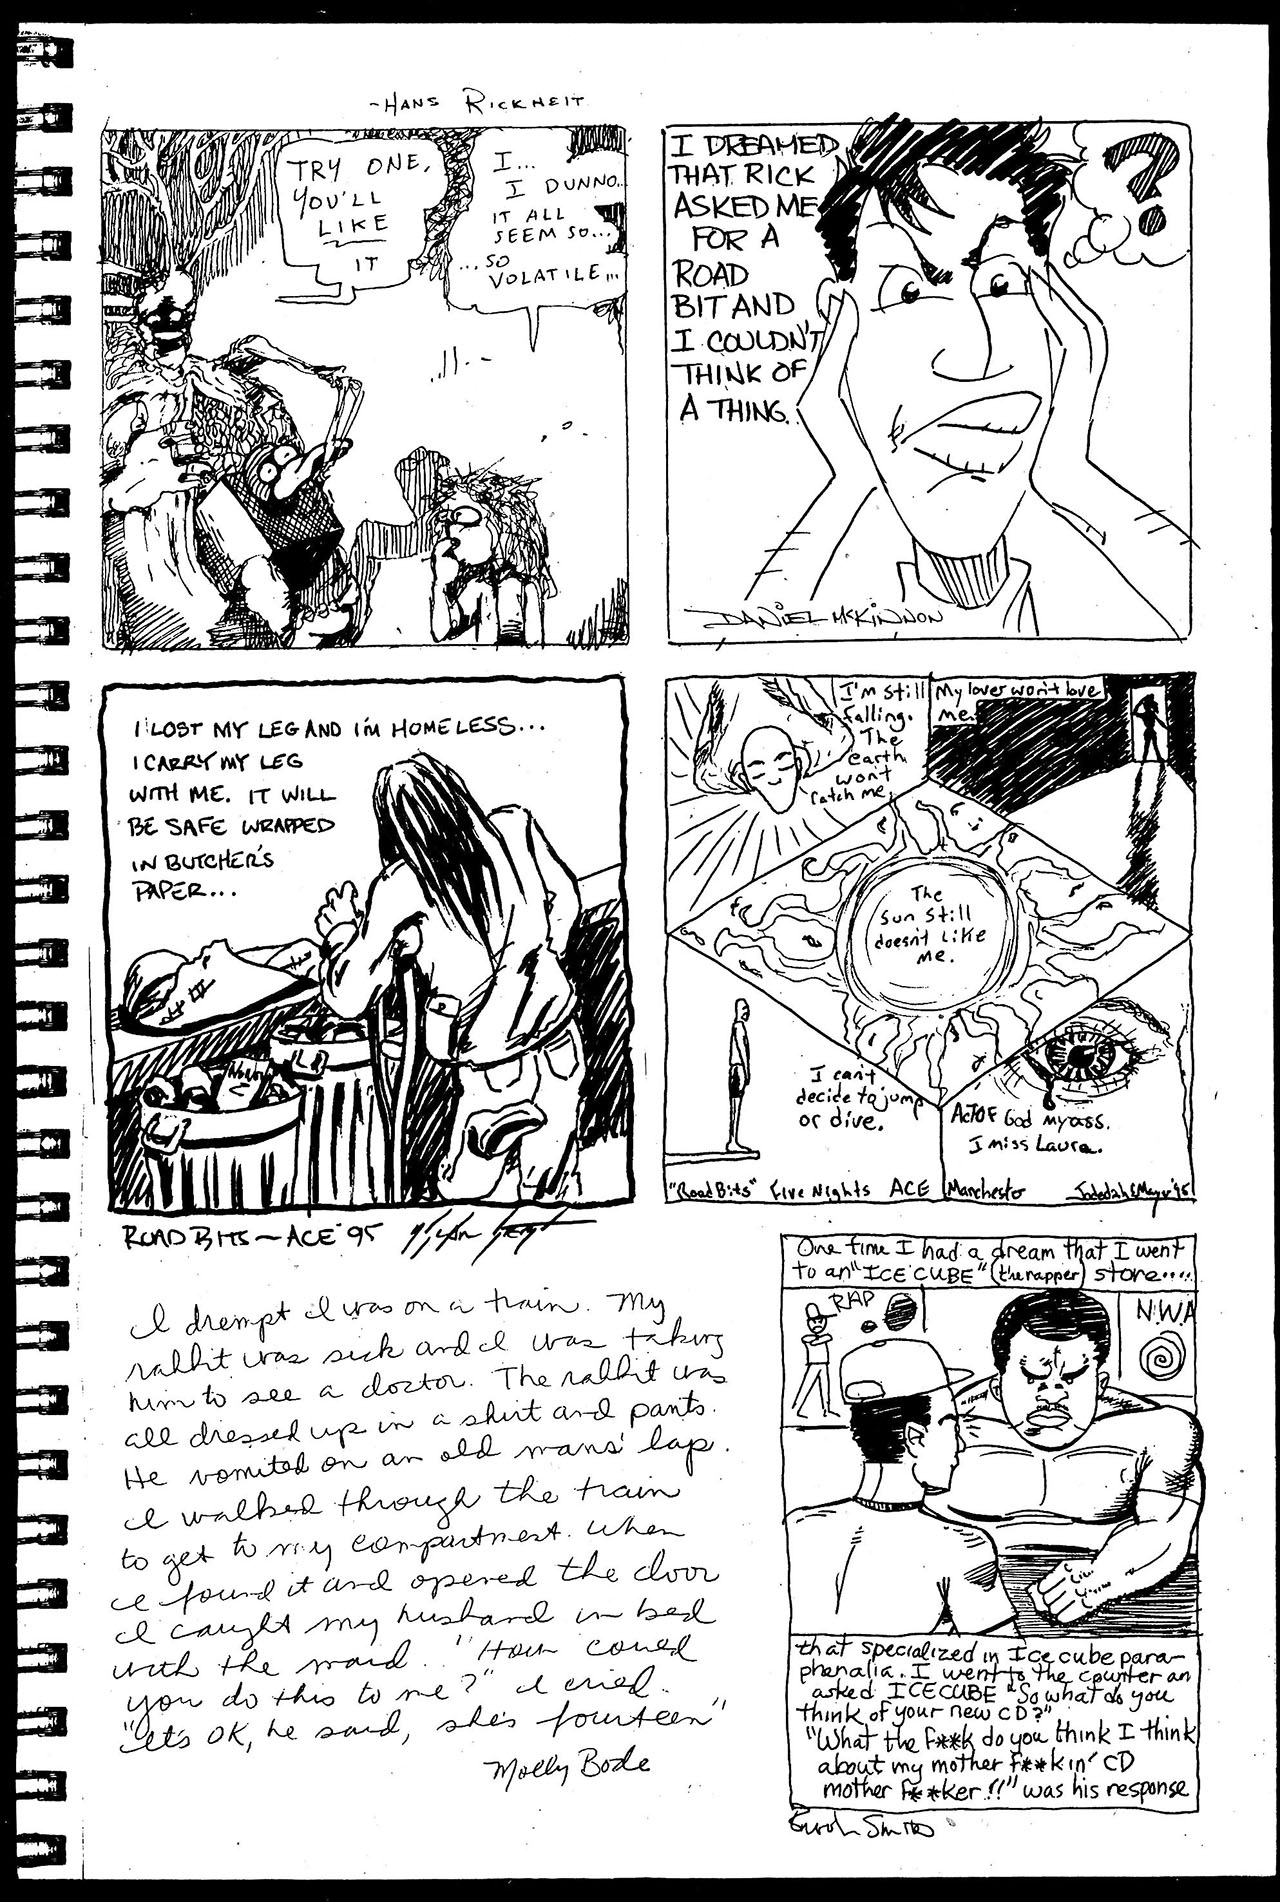 ~HANS RICKHEIT
TRY ONE,
YOU'LL
LIKE
IT
I...
I DUNNO...
IT ALL
SEEM SO...
...SO
VOLATILE...
I DREAMED
THAT RICK
ASKED ME
FOR A
ROAD
BIT AND
I COULDN'T
THINK OF
A THING.
?
DANIEL MCKINNON
I LOST MY LEG AND I'M HOMELESS...
I CARRY MY LEG
WITH ME. IT WILL
BE SAFE WRAPPED
IN BUTCHER'S
PAPER...
ROAD BITS ~ ACE '95
I'm still
falling.
The
earth
won't
catch me.
My lover won't love
me.
The
sun still
doesn't like
me.
I can't
decide to jump
or dive.
Act of God my ass.
I miss Laura.
"Road Bits" Five Nights ACE Manchester
'95
I drempt I was on a train. My
rabbit was sick and I was taking
him to see a doctor. The rabbit was
all dressed up in a shirt and pants.
He vomited on an old mans' lap.
I walked through the train
to get to my compartment. When
I found it and opened the door
I caught my husband in bed
with the maid. "How could
you do this to me?" I cried.
"It's OK, he said, she's fourteen"
Molly Bode
One time I had a dream that I went
to an "ICE CUBE" (the rapper) store....
RAP
NWA
that specialized in Ice cube para-
phanalia. I went to the counter an
asked ICE CUBE "So what do you
think of your new CD?"
"What the f**k do you think I think
about my mother f**kin' CD
mother f**ker!!" was his response